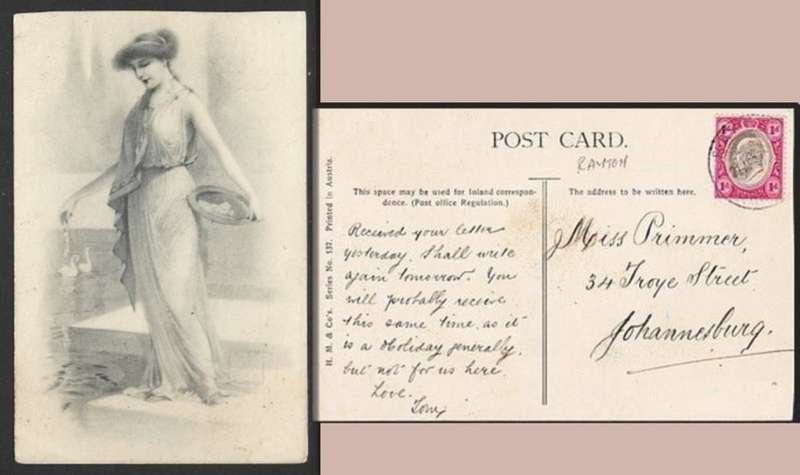 POST CARD.
RAMON
This space may be used for Inland correspon-
dence. (Post office Regulation.)
The address to be written here.
Received your letter
yesterday. Shall write
again tomorrow. You
will probably receive
this same time as it
is a Holiday generally,
but not for us here.
Love.
Tom
Miss Primmer,
34 Troye Street
Johannesburg.
H. M. & Co's. Series No. 137. Printed in Austria.
1d 1d
1d 1d